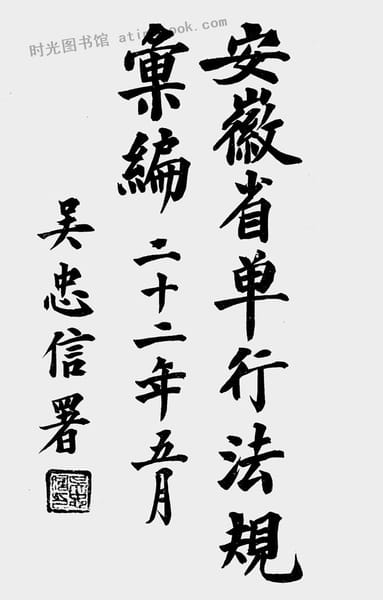 时光图书馆 atimebook.com
安徽省单行法規
彙編 二十二年五月
吴忠信署